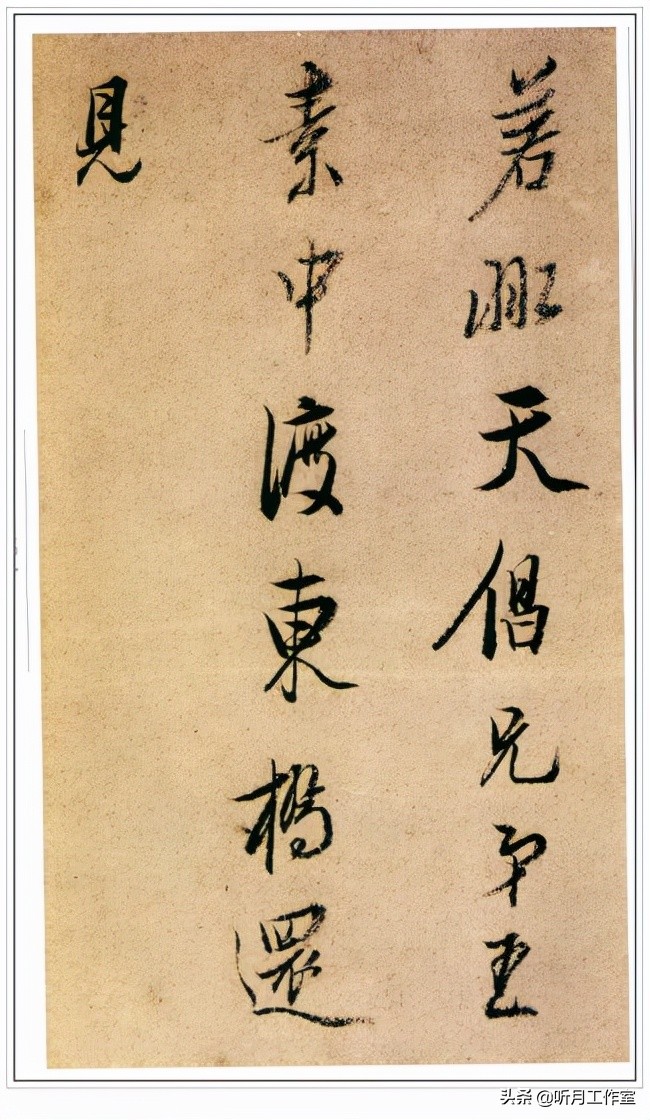 若天倡兄弟王
素中渡東橋還
見
头条 @听月工作室